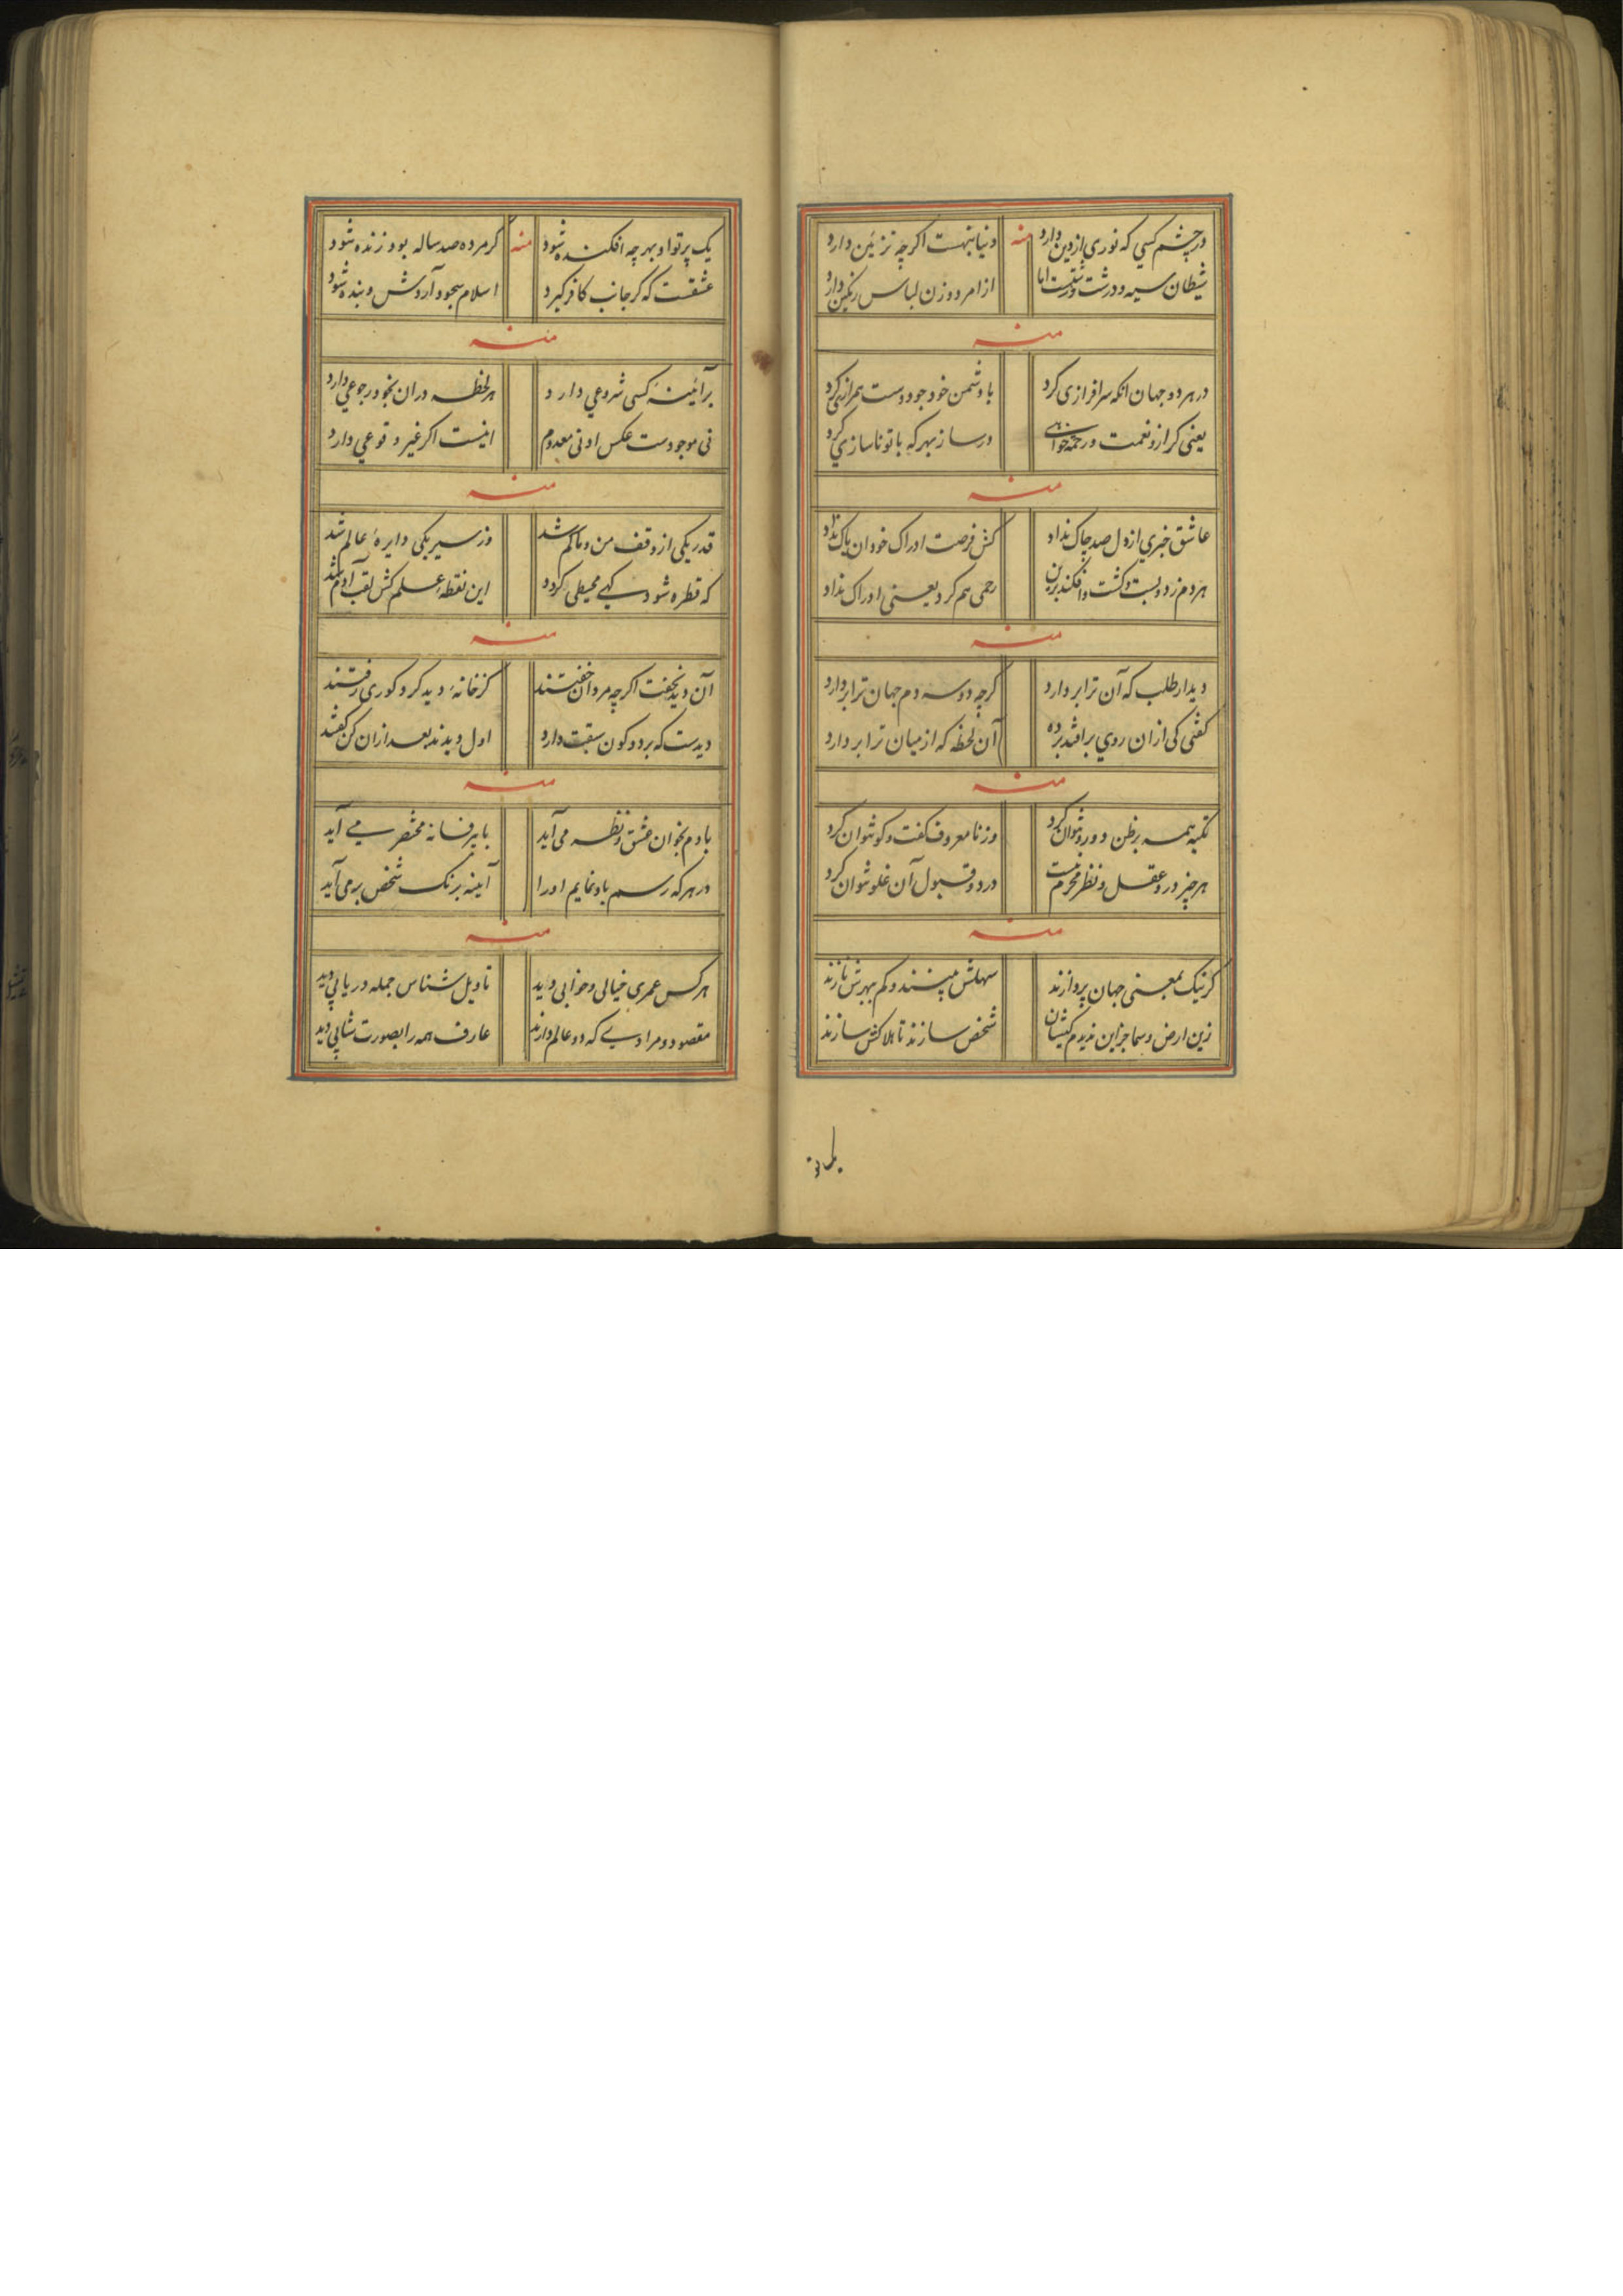 در چشم کسی که نوری از دین دارد منه دنیا تنهست اگرچه تزئین دارد
شیطان سیه و درشت و زشتست اما از امرد و زن لباس رنگین دارد
منه
در هر دو جهان انکه سرافرازی کرد با دشمن خود چو دوست همرازی کرد
یعنی کر ازو نعمت و رحمة خواهی در ساز بهر که با تو ناسازی کرد
منه
عاشق خبری از دل صد چاک نداد کش فرصت ادراک خود ان پاک نداد
هر دم زد و بست و کشت و افکند برین رحمی هم کرد یعنی ادراک نداد
منه
دیدار طلب که آن ترا بر دارد کرچه دو سه دم جهان ترا بر دارد
کفتی کی ازان روی بر افتد پرده آن لحظه که از میان ترا بر دارد
منه
تکیه همه بر ظن دو رو نتوان کرد وز نا معروف کفت و کو نتوان کرد
هر چیز درو عقل و نظر محرم نیست در رد و قبول آن غلو نتوان کرد
منه
کر نیک بمعنی جهان پردازند سهلش بینند و کم بهرش نازند
زین ارض و سما جز این ندیدم کیشان شخص سازند تا هلاکش سازند
یک پرتو او بهر چه افکنده شود منه کر مرده صد ساله بود زنده شود
عشقست که کر جانب کافر کیرد اسلام سجود آردش و بنده شود
منه
بر آئینهٔ کسی شروعی دارد هر لحظه دران بخود رجوعی دارد
نی موجودست عکس او نی معدوم اینست اکر غیر وقوعی دارد
منه
قدر یکی از وقف من و ما کم شد وز سیر یکی دایرهٔ عالم شد
که قطره شود کهی محیطی کردد این نقطهٔ علم کش لقب آدم شد
منه
آن دید نخفت اکرچه مردان خفتند کز خانهٔ دید کرد کوری رفتند
دیدست که بر دو کون سبقت دارد اول دیدند بعد ازان کن کفتند
منه
با دم بخوان عشق و نظر می آید با پر فسانه مختصر می آید
در هر که رسم باو نمایم او را آینه برنک شخص بر می آید
منه
هر کس عمری خیالی و خوابی دید تاویل شناس جمله دریابی دید
مقصود و مرادی که دو عالم دارند عارف همه را بصورت شابی دید